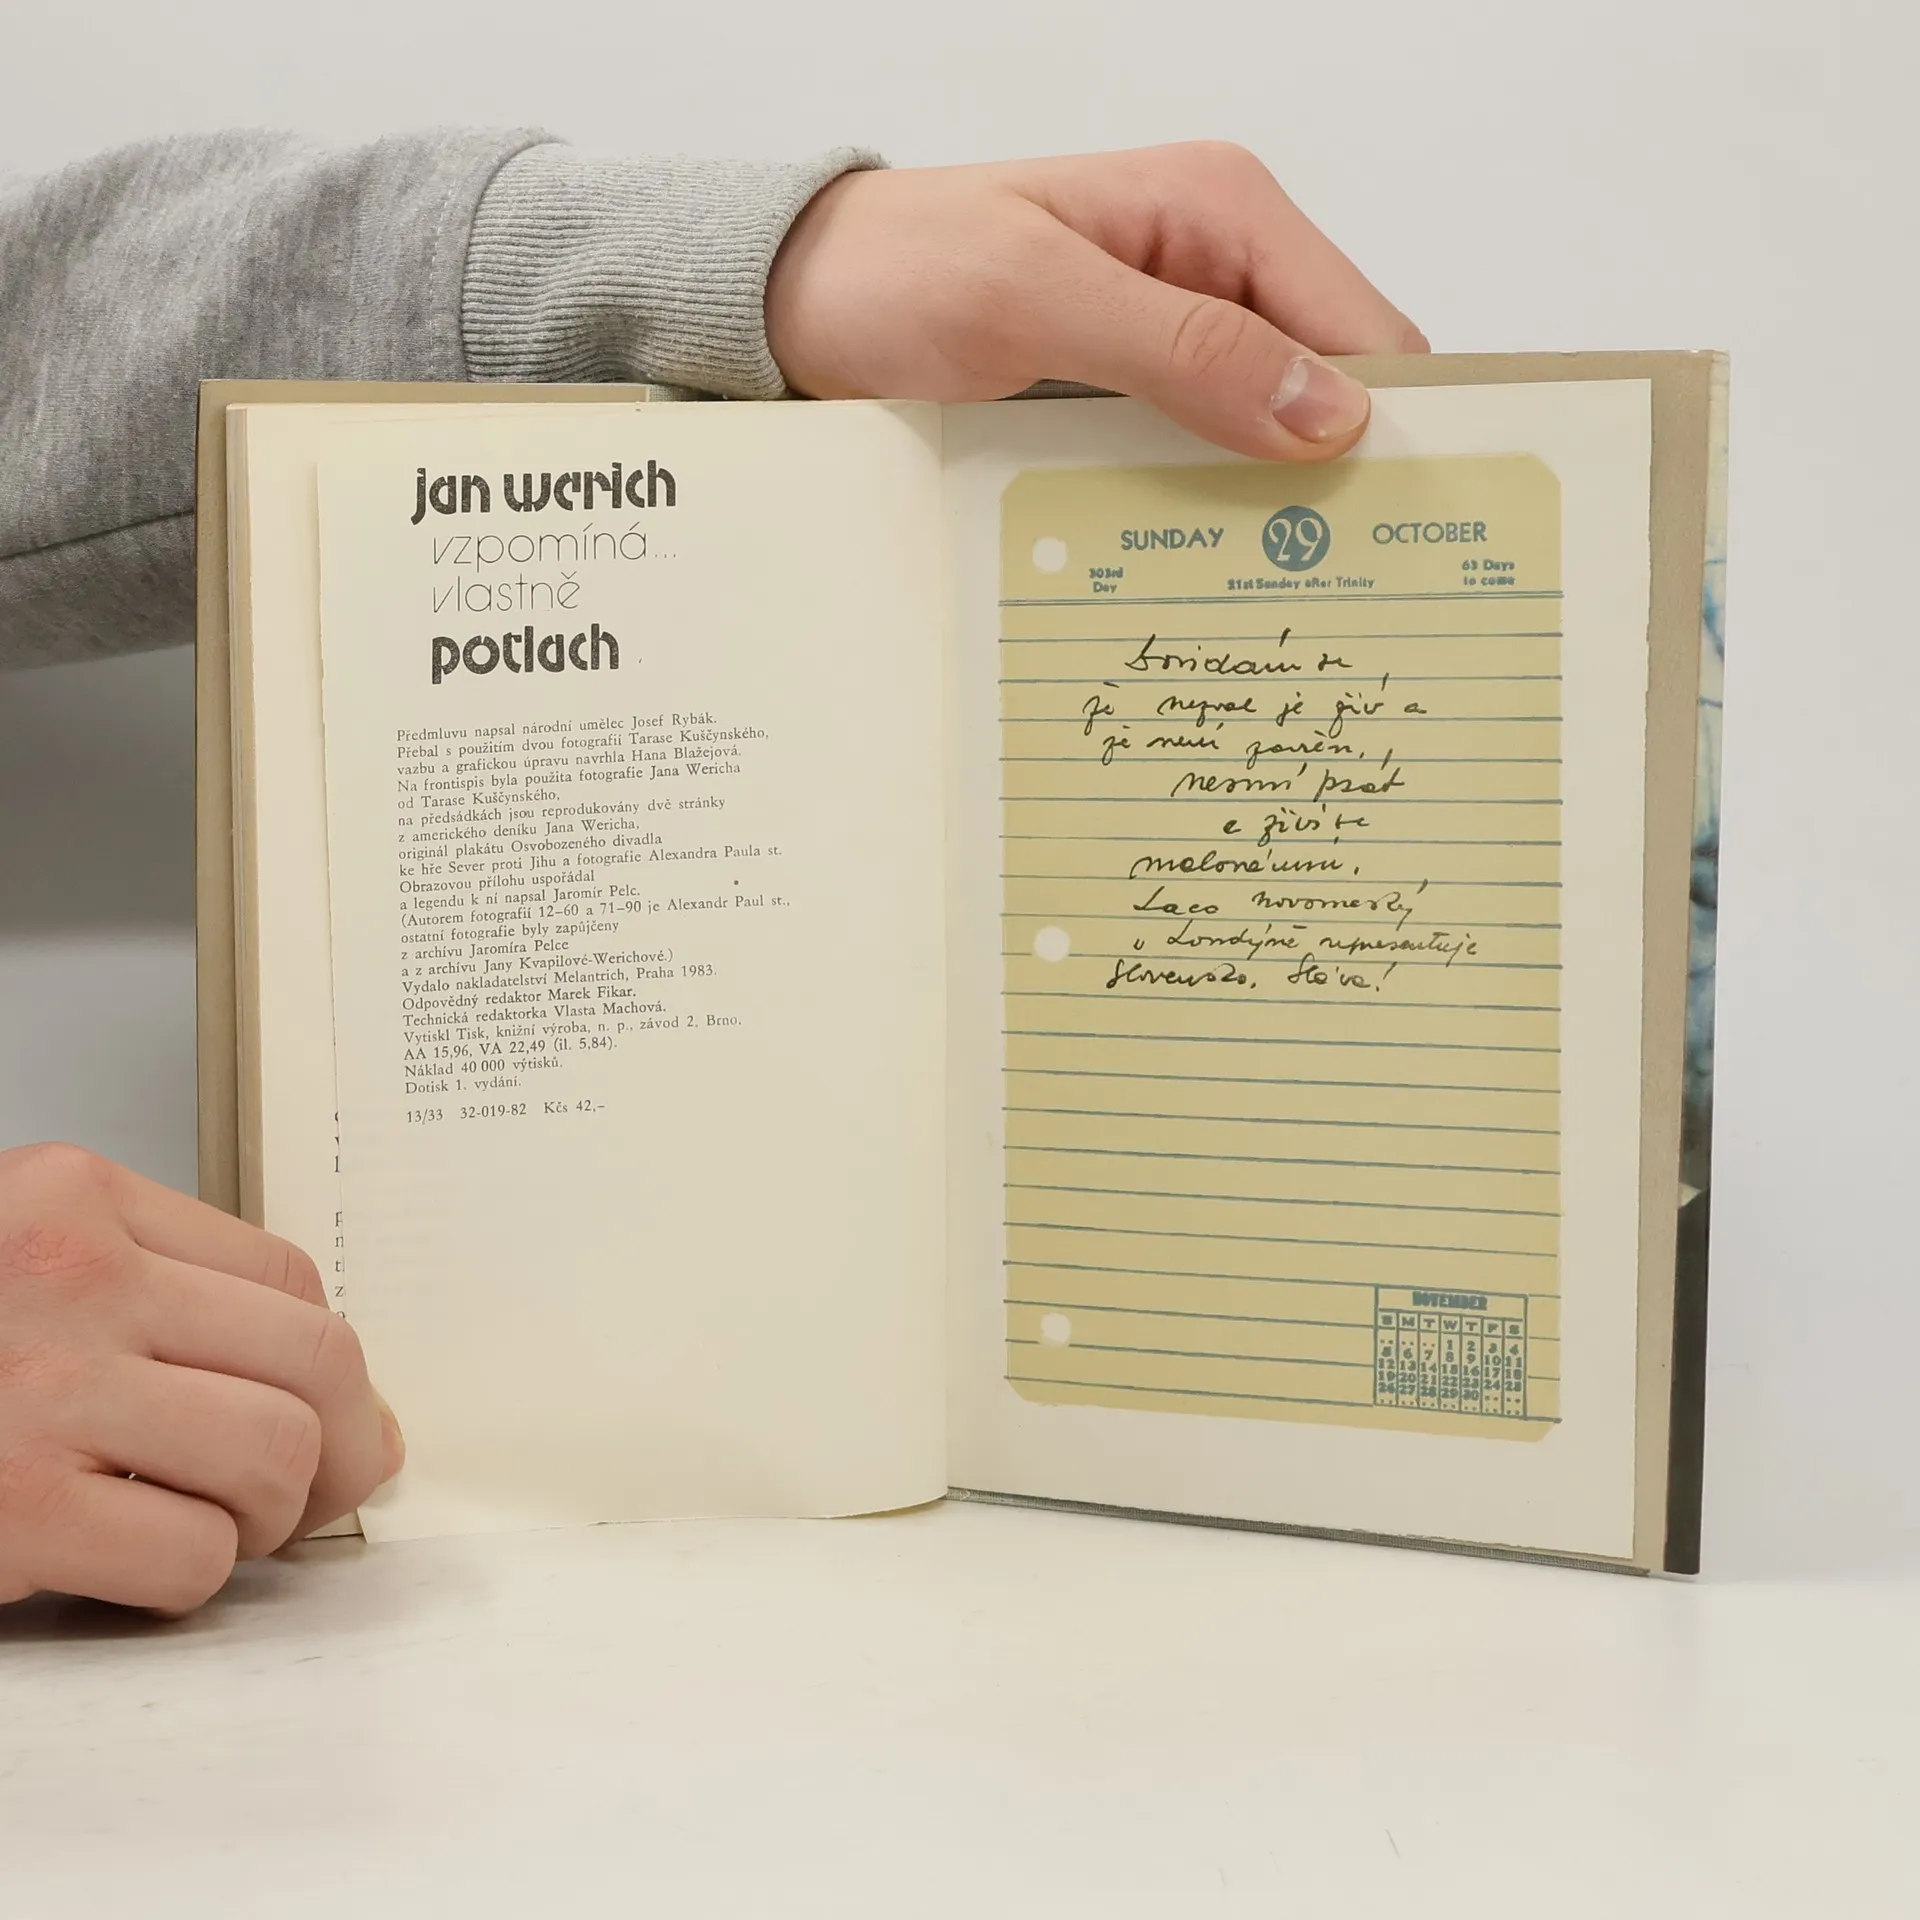 jan werich
vzpomíná...
vlastně
potlach
Předmluvu napsal národní umělec Josef Rybák.
Přebal s použitím dvou fotografií Tarase Kuščynského,
vazbu a grafickou úpravu navrhla Hana Blažejová.
Na frontispis byla použita fotografie Jana Wericha
od Tarase Kuščynského,
na předsádkách jsou reprodukovány dvě stránky
z amerického deníku Jana Wericha,
originál plakátu Osvobozeného divadla
ke hře Sever proti Jihu a fotografie Alexandra Paula st.
Obrazovou přílohu uspořádal
a legendu k ní napsal Jaromír Pelc.
(Autorem fotografií 12–60 a 71–90 je Alexandr Paul st.,
ostatní fotografie byly zapůjčeny
z archívu Jaromíra Pelce
a z archívu Jany Kvapilové-Werichové.)
Vydalo nakladatelství Melantrich, Praha 1983.
Odpovědný redaktor Marek Fikar.
Technická redaktorka Vlasta Machová.
Vytiskl Tisk, knižní výroba, n. p., závod 2, Brno.
AA 15,96, VA 22,49 (il. 5,84).
Náklad 40 000 výtisků.
Dotisk 1. vydání.
13/33 32-019-82 Kčs 42,–
SUNDAY 29 OCTOBER
303rd Day 21st Sunday after Trinity 63 Days to come
Dovídám se
že nezval je živ a
že není zavřen,
nesmí psát
a živí se
malováním.
Laco Novomeský
v Londýně representuje
Slovensko. Sláva!
NOVEMBER
S M T W T F S
.. .. .. 1 2 3 4
5 6 7 8 9 10 11
12 13 14 15 16 17 18
19 20 21 22 23 24 25
26 27 28 29 30 .. ..